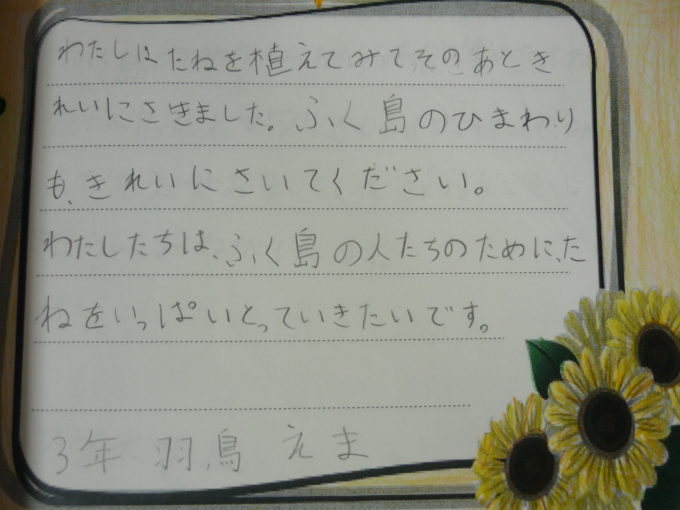 わたしはたねを植えてみてそのあとき
れいにさきました。ふく島のひまわり
も、きれいにさいてください。
わたしたちは、ふく島の人たちのために、た
ねをいっぱいとっていきたいです。
3年 羽鳥 えま